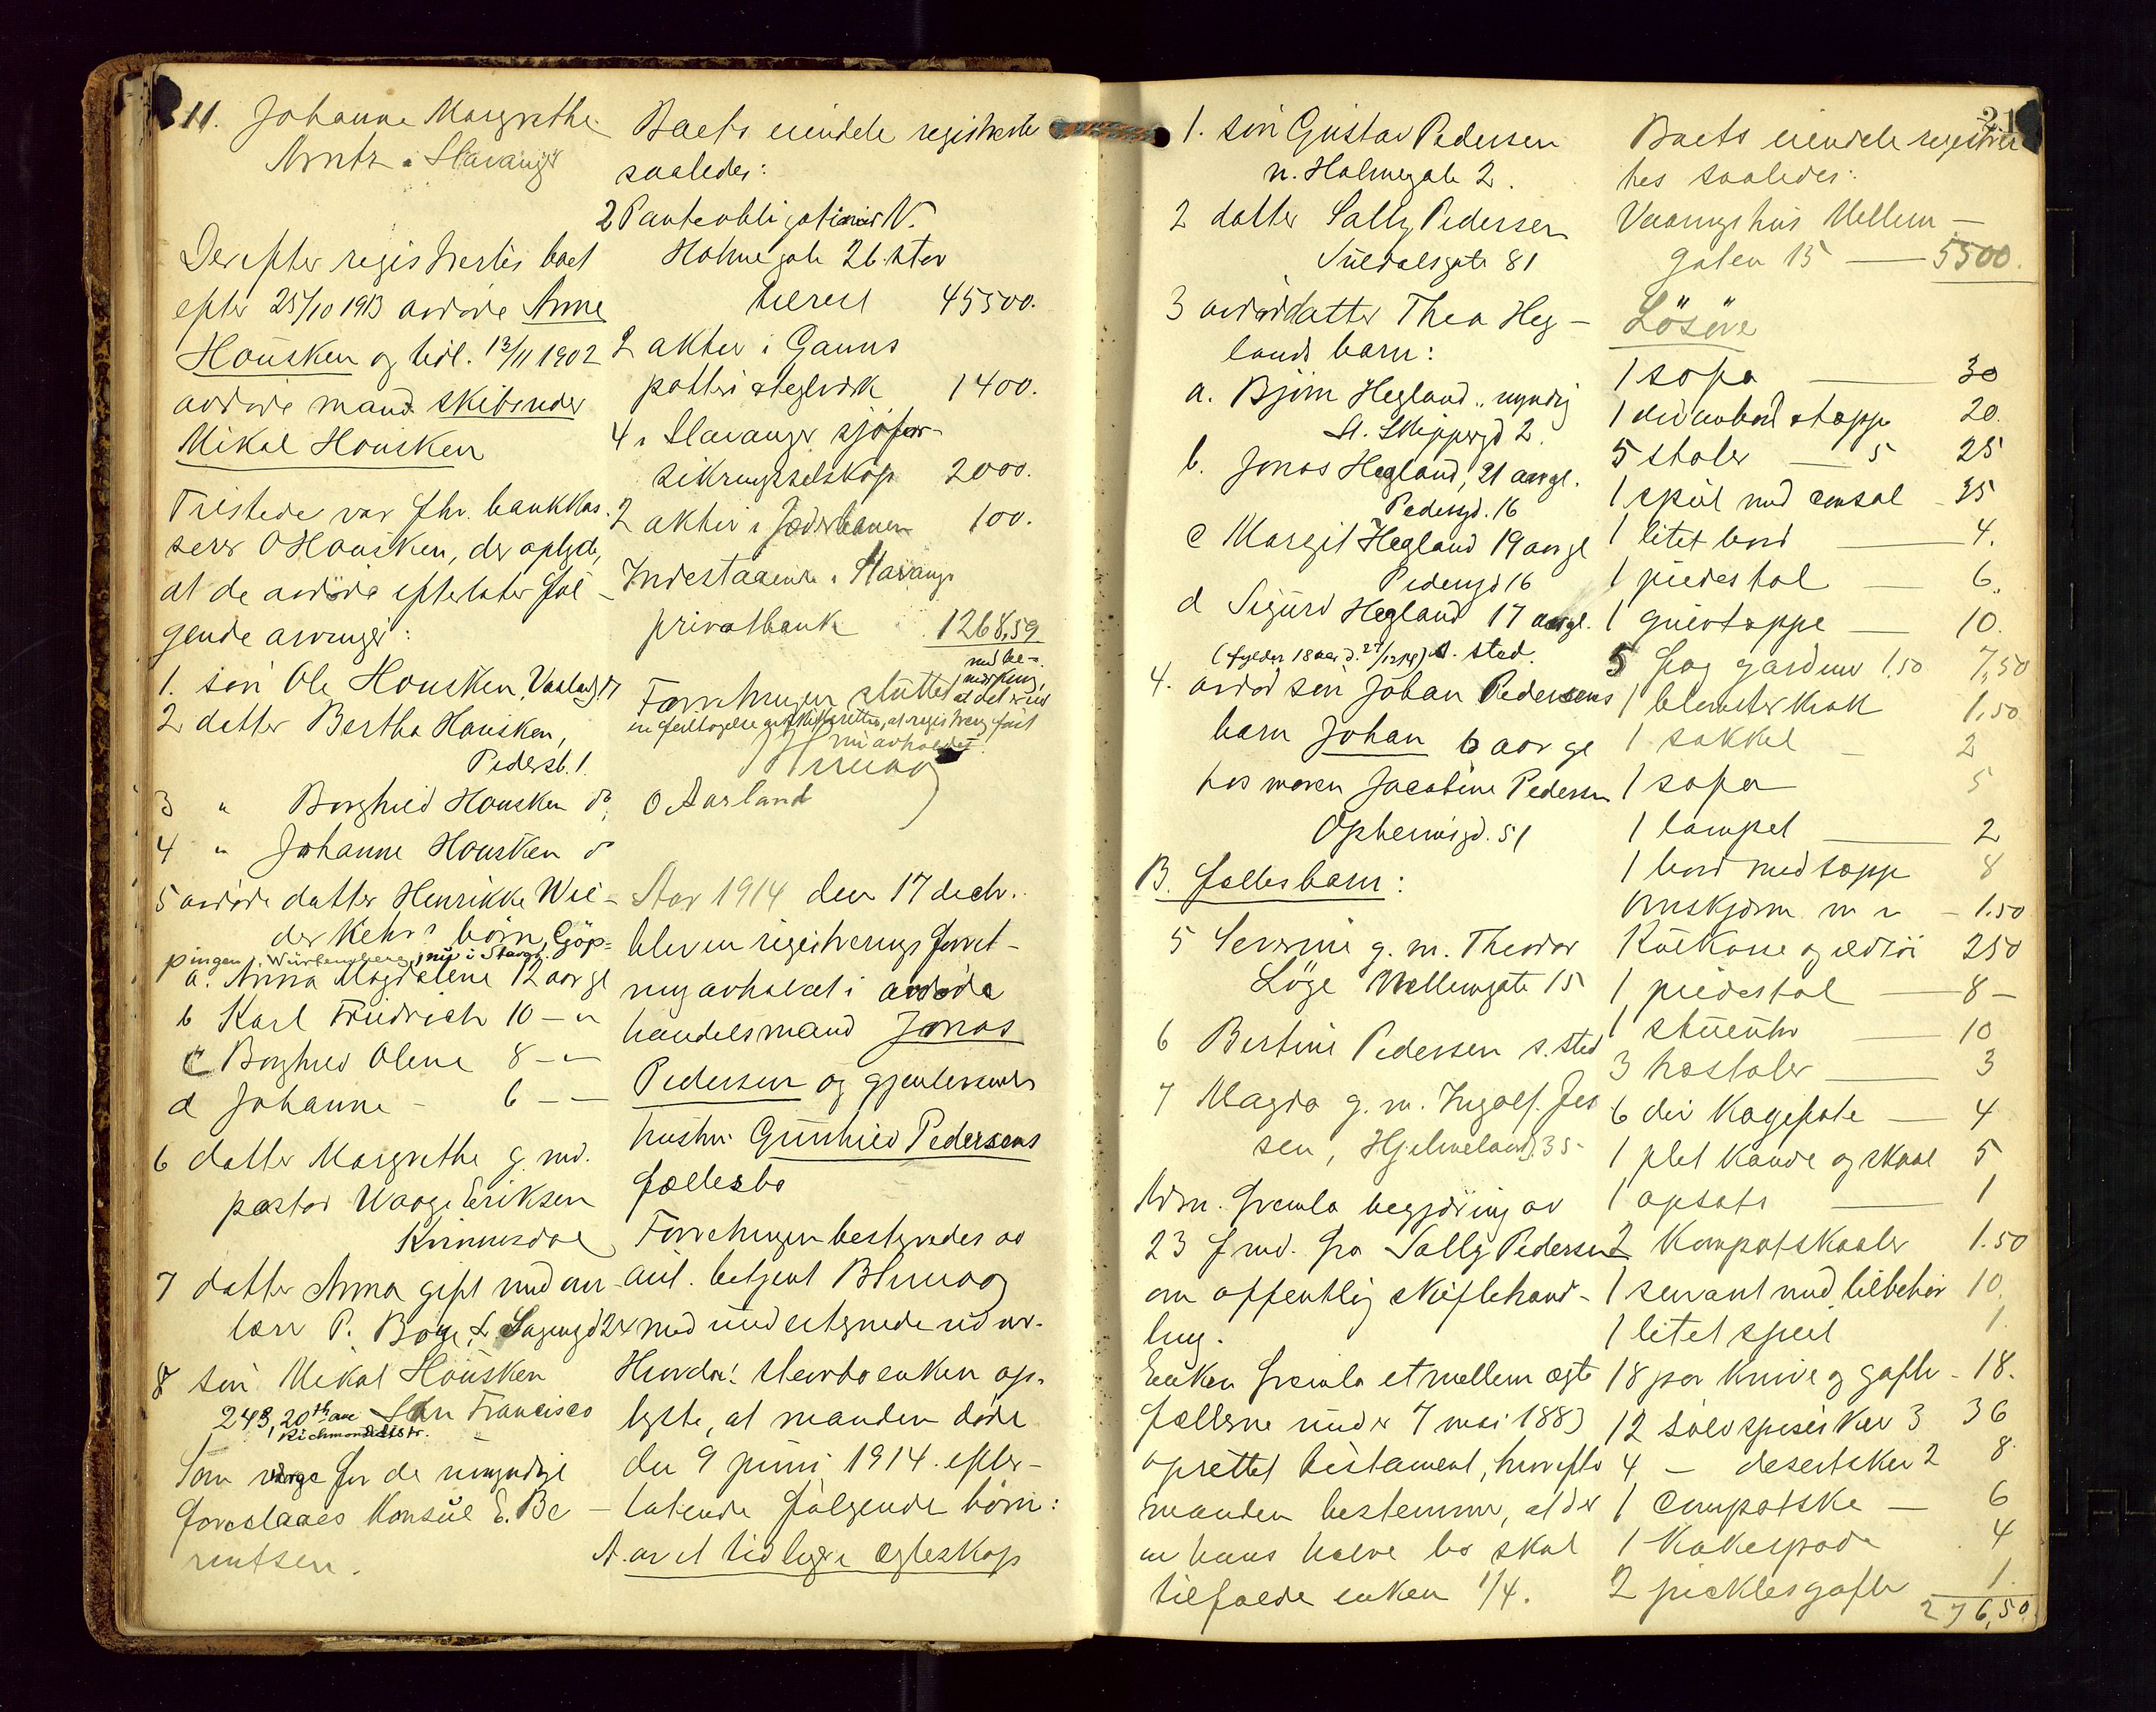 11. Johanne Margrethe
Arntz i Stavanger
Derefter registrertes boet
efter 25/10 1913 avdøde Anne
Housken og tidl. 13/11 1902
avdøde mand skibsreder
Mikal Housken
Tilstede var fhv. bankkas-
serer O Housken, der oplyste,
at de avdøde efterlater føl-
gende arvinger:
1. søn Ole Housken, Vaalandsg. 17
2 datter Bertha Housken,
Pedersb. 1.
3 " Borghild Housken do
4 " Johanne Housken do
5 avdøde datter Henrikke Wil-
der Kehrs børn, Göp-
pingen, Würtemberg, nu i Stavgr.
a. Anna Magdalene 12 aar gl
b Karl Friedrich 10 — "
c Borghild Olene 8 — "
d Johanne - 6 — —
6 datter Margrethe g. md.
pastor Waage Eriksen
Kvinnesdal
7 datter Anna gift med over-
lærer P. Bøge, L. Sagengd 24
8 søn Mikal Housken
243, 20th ave San Francisco
Richmond distr.
Som verge for de umyndige
foreslaaes Konsul E. Be-
rentsen.
Boets eiendele registrertes
saaledes:
2 Panteobligationer N.
Holmegate 26. stor
tilsml 45500.
2 aktier i Ganns
potteri & teglverk 1400.
4 i Stavanger sjøfor-
sikringsselskap 2000.
2 aktier i Jæderbanen 100.
Indestaaende i Stavanger
privatbank 1268,59
Forretningen sluttet med be-
merkning, at det er ved
en feiltagelse av skifteretten, at registrering først
nu avholdes.
O Aarland
Aar 1914 den 17 decbr.
blev en registreringsforret-
ning avholdt i avdøde
handelsmand Jonas
Pedersen og gjenlevende
hustru Gunhild Pedersens
fællesbo
Forretningen bestyredes av
aut. betjent
med undertegnede vidner.
Hvorda! stervboenken op-
lyste, at manden døde
den 9 juni 1914. efter-
latende følgende børn:
A. av et tidligere egteskap
21
1. søn Gustav Pedersen
n. Holmegate 2.
2 datter Sally Pedersen
Suldalsgate 81
3 avdød datter Thea Heg-
lands barn:
a. Bjørn Hegland, myndig
St. Skippergd 2.
b. Jonas Hegland, 21 aar gl.
Pedersgd. 16
c Margit Hegland 19 aar gl
Pedersgd 16
d Sigurd Hegland 17 aar gl.
(fylder 18 aar d. 27/12 14) s. sted.
4. avdød søn Johan Pedersens
barn Johan 6 aar gl
hos moren Jacobine Pedersen
Opheimsgd. 51
B. fællesbarn:
5 Severine g. m. Theodor
Løge Mellemgate 15
6 Bertine Pedersen s. sted
7 Magda g. m. Ingolf Jes
sen, Hjelmelandsg. 35
Adm. fremla begjæring av
23 f md. fra Sally Pedersen
om offentlig skiftehand-
ling.
Enken fremla et mellem egte
fællerne under 7 mai 1883
oprettet testament, hvorefter
manden bestemmer, at der
av hans halve bo skal
tilfalde enken 1/4.
Boets eiendele registrer
tes saaledes:
Vaaningshus Mellem-
gaten 15 — 5500.
Løsøre
1 sofa — 30
1 divanbord & tæppe 20.
5 stoler — 5 25
1 speil med consol — 35
1 litet bord — 4.
1 piedestal — 6.
1 gulvtæppe — 10.
5 fag gardiner 1.50 7,50
1 blomsterkrak 1,50
1 sokkel — 2
1 sofa 5
1 lampet — 2
1 bord med tæppe 8
Ovnskjærm m m — 1.50
Kulkasse og ildtøi 250
1 piedestal — 8 —
1 stueuhr — 10
3 træstoler — 3
6 div kagefate — 4
1 plet kande og skaal 5
1 opsats — 1
2 Kompotskaaler 1.50
1 servant med tilbehør 10.
1 litet speil 1.
18 par knive og gafler — 18.
12 sølv spiseskeer 3 36
4 — desertskeer 2 8
1 compotske — 6
1 kakespade 4
2 picklesgafler 1.
276,50